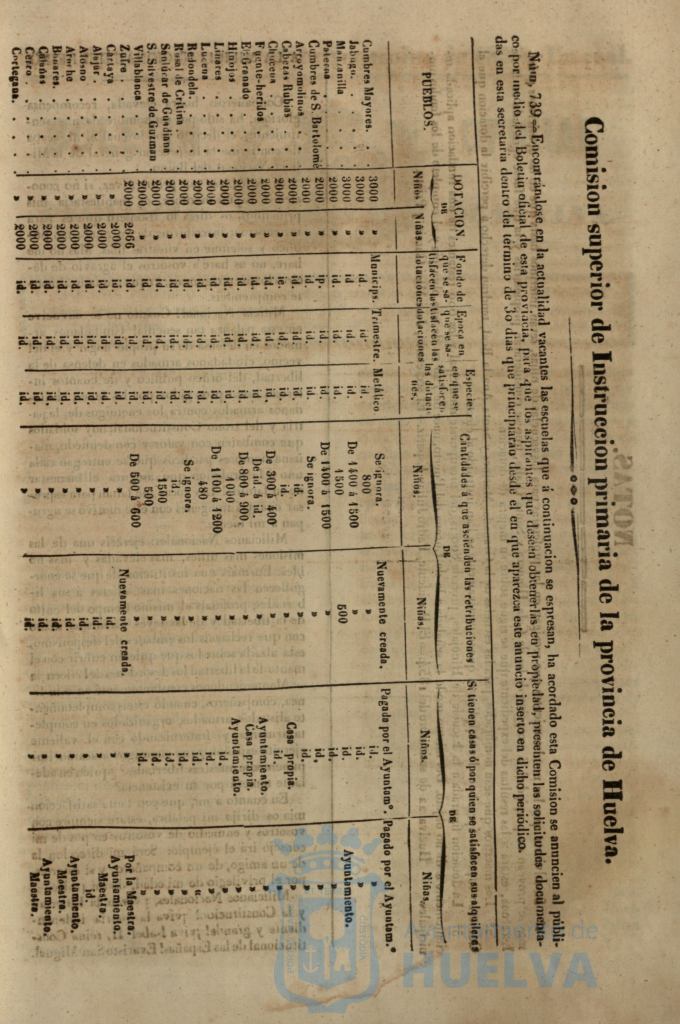 Comision superior de Instruccion primaria de la provincia de Huelva.
Núm. 739.—Encontrándose en la actualidad vacantes las escuelas que á continuacion se espresan, ha acordado esta Comision se anuncien al públi-
co por medio del Boletin oficial de esta provincia, para que los aspirantes que deseen obtenerlas en propiedad, presenten las solicitudes documenta-
das en esta secretaria dentro del término de 30 dias que principiarán desde el en que aparezca este anuncio inserto en dicho periódico.
PUEBLOS. DOTACION DE Niños Niñas. Fondo de que se satisfacen las dotaciones Epoca en que se satisfacen las dotaciones Especie en que se satisfacen las dotaciones. Cantidades á que ascienden las retribuciones DE Niños. Niñas. Si tienen casas ó por quien se satisfacen sus alquileres DE Niños. Niñas.
Cumbres Mayores. 3000 » Municips. Trimestre. Metálico Se ignora. Nuevamente creada. Pagada por el Ayuntamº. Pagado por el Ayuntam.º
Jabugo. 3000 » id. id. id. 800 » id. »
Manzanilla 3000 » id. id. id. De 1400 á 1500 » id. »
Paterna 2000 » id. id. id. 1500 500 id. Ayuntamiento.
Cumbres de S. Bartolomé 2000 » ip. id. id. De 1400 à 1500 » id. »
Arroyomolinos 2000 » id. id. id. Se ignora. » id. »
Cabezas Rubias 2000 » id. id. id. id. » id. »
Chucena 2000 » id. id. id. id. » Casa propia. »
Fuente-heridos 2000 » id. id. id. De 300 á 400 » id. »
El Granado 2000 » id. id. id. De id. á id. » Ayuntamiento. »
Hinojos 2000 » id. id. id. De 800 à 900 » Casa propia. »
Linares 2000 » id. id. id. 1000 » Ayuntamiento. »
Lucena 2000 » id. id. id. De 1100 à 1200 » id. »
Redondela. 2000 » id. id. id. 480 » id. »
Rosal de Cristina 2000 » id. id. id. Se ignora. » id. »
Sanlúcar de Guadiana 2000 » id. id. id. id. » id. »
S. Silvestre de Guzman 2000 » id. id. id. 1500 » id. »
Villablanca 2000 » id. id. id. 500 » id. »
Zufre 2000 2566 id. id. id. De 500 à 600 Nuevamente creada. id. Por la Maestra.
Cartaya » 2000 id. id. id. » id. » Ayuntamiento.
Alajar » 2000 id. id. id. » id. » Maestra.
Alosno » 2000 id. id. id. » id. » id.
Aroche » 2000 id. id. id. » id. » Ayuntamiento.
Bonares. » 2000 id. id. id. » id. » Maestra.
Cabañas » 2000 id. id. id. » id. » Ayuntamiento.
Cerro » 2000 id. id. id. » id. » Maestra.
Cortegana. » 2000 id. id. id.
Ayuntamiento de
HUELVA